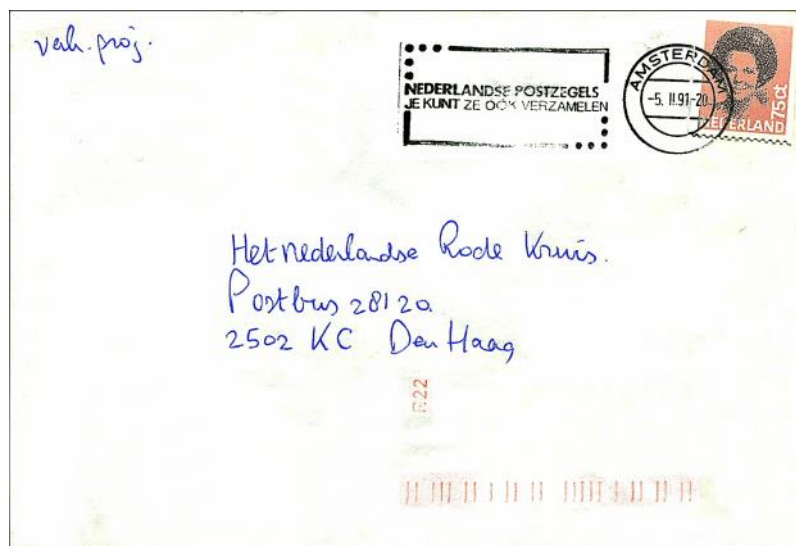 vak. proj.
NEDERLANDSE POSTZEGELS
JE KUNT ZE OOK VERZAMELEN
AMSTERDAM
-5. II.91-20
75 ct
NEDERLAND
Het nederlandse Rode Kruis.
Postbus 28120
2502 KC Den Haag
R22